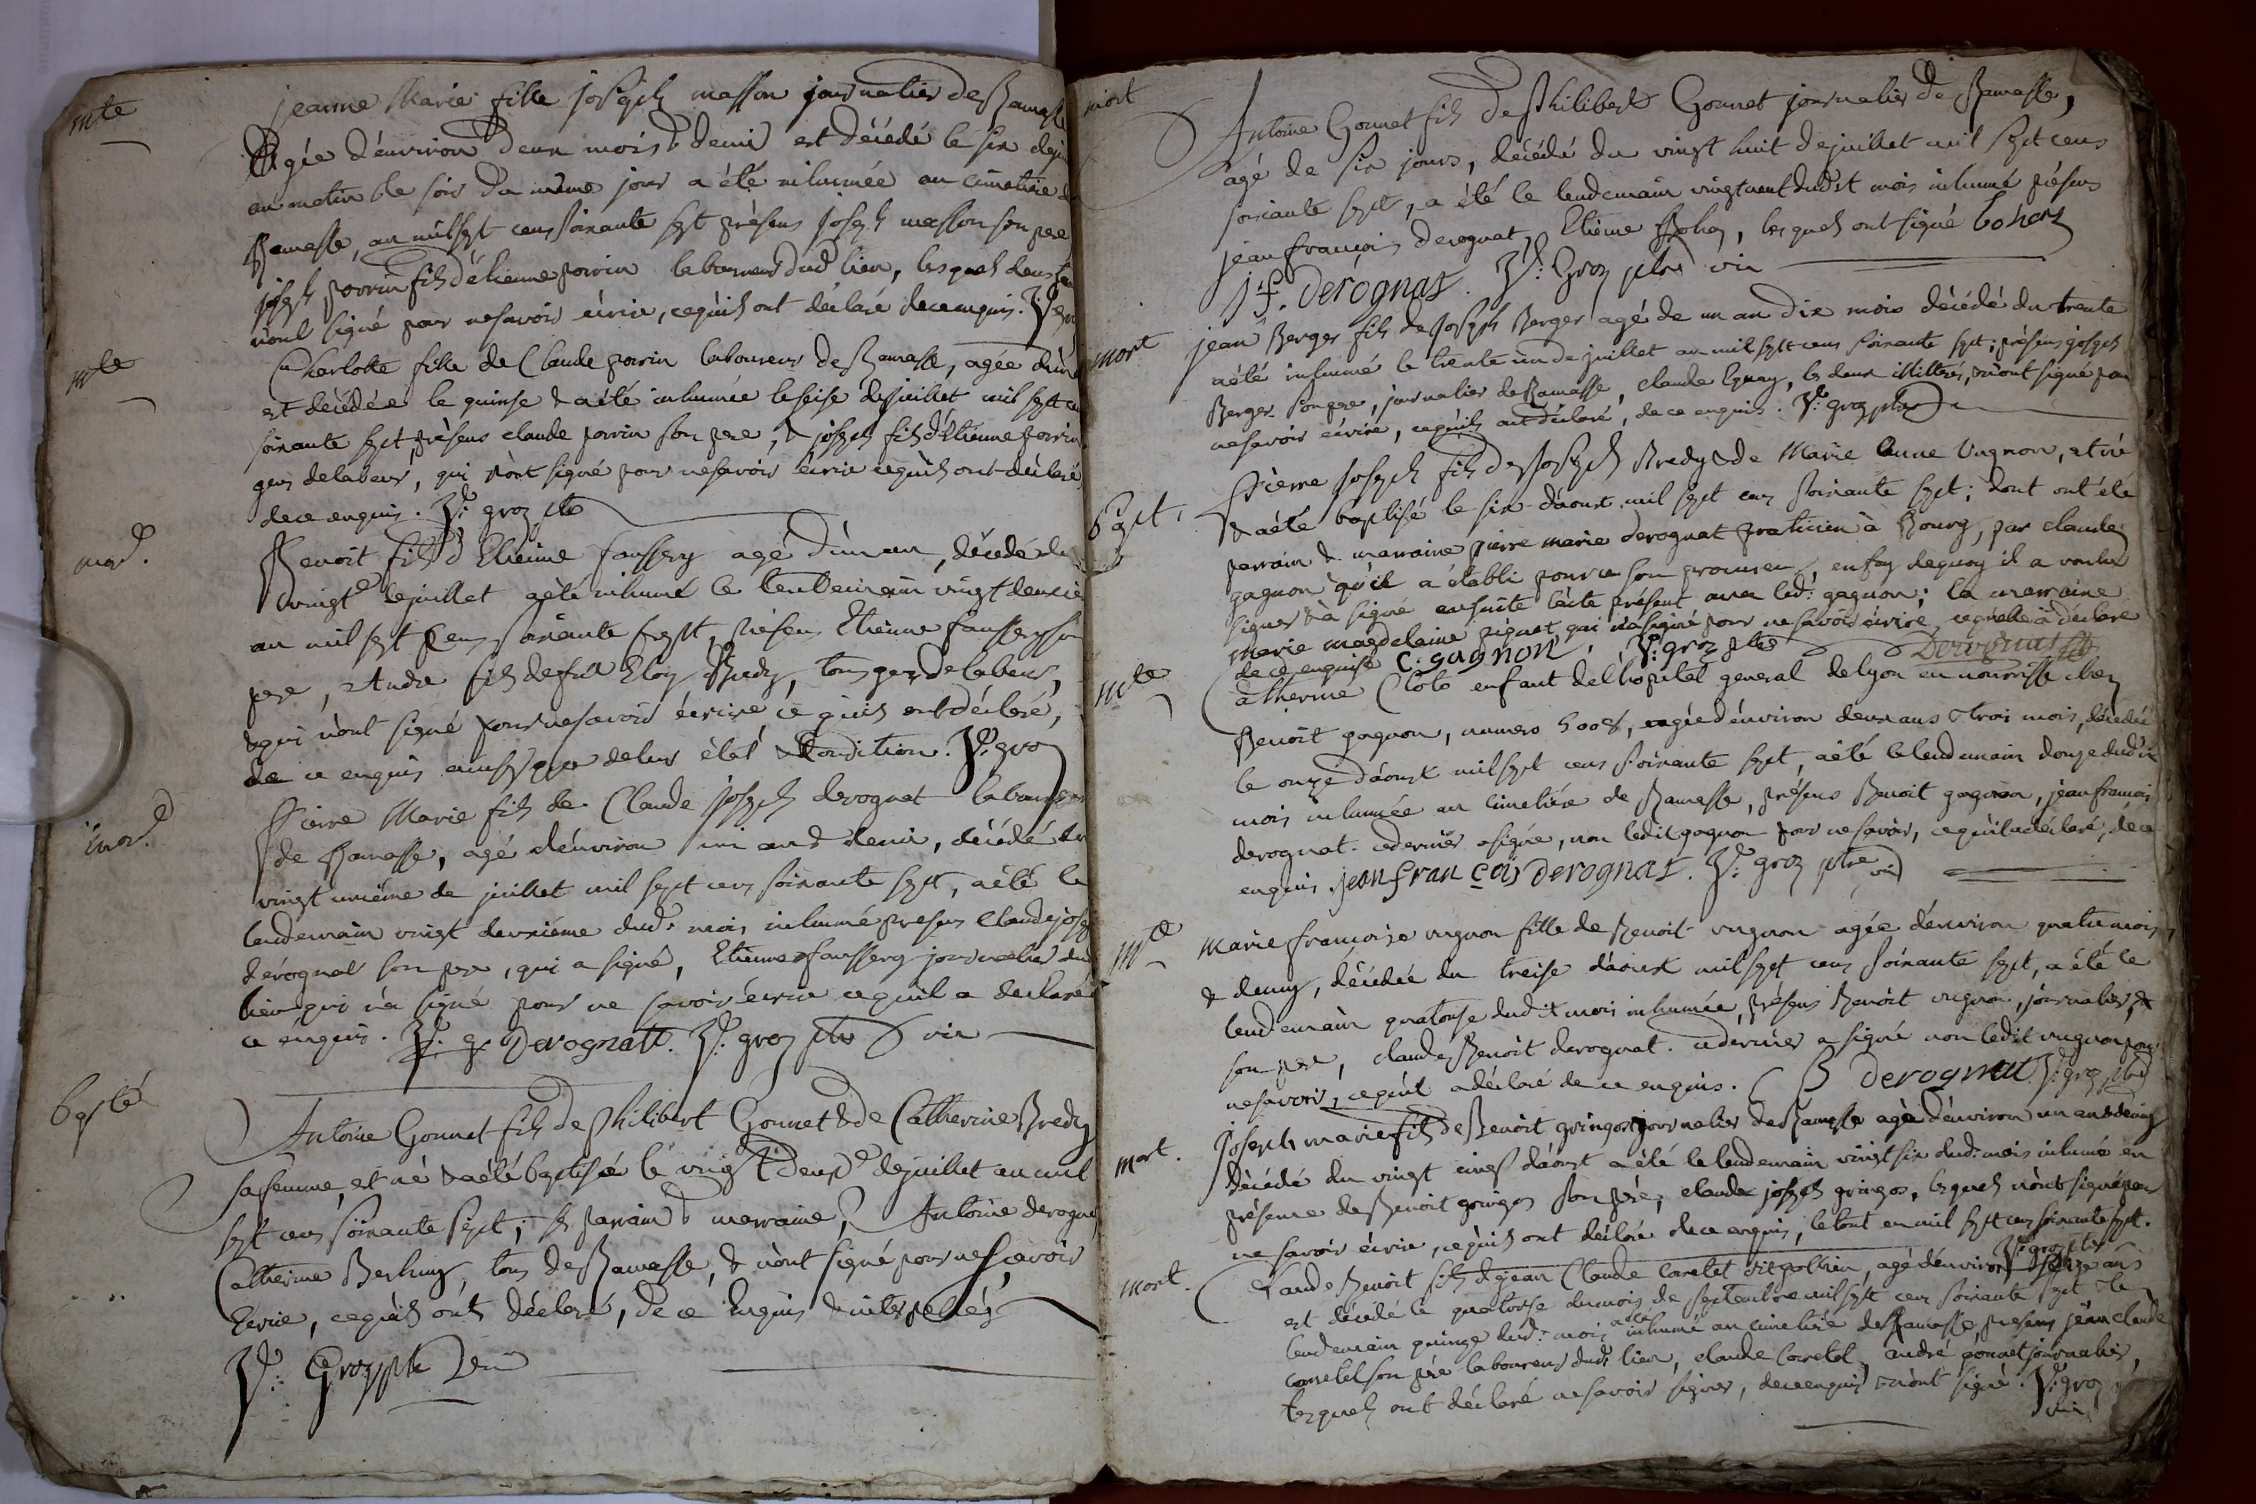 mte
jeanne Marie fille joseph masson journalier de Ramasse
agée d'environ deux mois & demi est décédé le six de
au matin & le soir du même jour a été inhumée au cimetiere
Ramasse, an mil sept cens soixante sept présens joseph masson son pere
joseph porrin fils d'étienne porrin laboureur dud lieu, lesquels
n'ont signé pour ne savoir écrire, ce qu'ils ont déclaré de ce enquis.
mte
Charlotte fille de Claude porrin laboureur de Ramasse, agée d'un
est décédée le quinse & a été inhumée le seise de juillet mil sept
soixante sept, présens claude porrin son pere, & joseph fils d'Etienne porrin
gens de labeur, qui n'ont signé pour ne savoir écrire ce qu'ils ont déclaré
de ce enquis. groz ptre
mord.
Benoit fils d'Etienne faussery agé d'un an, décédé du
vingt de juillet a été inhumé le lendemain vingt
an mil sept cens soixante sept, présens Etienne faussery son
pere, Andre fils de feu Eloy Bredy, tous gens de labeur,
& qui n'ont signé pour ne savoir écrire ce qu'ils ont déclaré,
de ce enquis ainsy que de leur état & condition. groz
mord.
Pierre Marie fils de Claude joseph derognat laboureur
de Ramasse, agé d'environ un an & demi, décédé du
vingt unième de juillet mil sept cens soixante sept, a été le
lendemain vingt deuxième dud. mois inhumé presens Claude joseph
derognat son pere, qui a signé, Etienne faussery journalier du
lieu qui n'a signé pour ne savoir écrire ce qu'il a declaré
ce enquis. Derognatt. groz ptre vic
bapté
Antoine Gonnet fils de Philibert Gonnet & de Catherine Bredy
sa femme, est né & a été baptisé le vingt deux de juillet an mil
sept cens soixante sept; ses parrain & marraine, Antoine derognat
Catherine, tous de Ramasse, & n'ont signé pour ne scavoir
Ecrire, ce qu'ils ont déclaré, de ce Enquis & interpellés
Groz ptre vic
mort
Antoine Gonnet fils de Philibert Gonnet journalier de Ramasse,
agé de six jours, décédé du vingt huit de juillet mil sept cens
soixante sept, a été le lendemain vingt neuf dudit mois inhumé présens
jean françois derognat, Etienne Bohez, lesquels ont signé bohez
jf. derognat. Groz ptre vic
mort
jean Berger fils de joseph Berger agé de un an dix mois décédé du trente
a été inhumé le trente un de juillet an mil sept cens soixante sept; présens joseph
Berger son pere, journalier de Ramasse, claude, les deux illitérés, n'ont signé pour
ne savoir écrire, ce qu'ils ont déclaré, de ce enquis. groz ptre
bapt.
Pierre joseph fils de joseph Bredy & de Marie Anne Vugnon, est né
& a été baptisé le six d'aoust mil sept cens soixante sept; dont ont été
parrain & marraine pierre marie derognat praticien à Bourg, par claude
gagnon qu'il a établi pour ce son procureur, en foy de quoy il a voulu
signer & a signé ensuite l'acte présent avec led. gagnon; la marraine
marie magdelaine piguet, qui n'a signé pour ne savoir écrire, ce qu'elle a déclaré
de ce enquise C. gagnon. groz ptre Derognat
mte
Catherine Cloto enfant de l'hopital general de lyon en nourrisse chez
Benoit gagnon, numero 5008, agée d'environ deux ans & trois mois, décédée
le onze d'aoust mil sept cens soixante sept, a été le lendemain douze dudit
mois inhumée au cimetiére de Ramasse, présens Benoit gagnon, jean francois
derognat. ce dernier a signé, non ledit gagnon pour ne savoir, ce qu'il a déclaré, de ce
enquis. jean françois derognat. groz ptre vic
mte
Marie françoise vugnon fille de Benoit vugnon agée d'environ quatre mois
& demy, décédée du treise d'aoust mil sept cens soixante sept, a été le
lendemain quatorse dudit mois inhumée, présens Benoit vugnon, journalier, &
son pere, claude Benoit derognat. ce dernier a signé non ledit vugnon pour
ne savoir, ce qu'il a déclaré de ce enquis. B derognat. groz ptre
mort.
joseph marie fils de Benoit gringoz journalier de Ramasse agé d'environ un an & demy
décédé du vingt cinq d'aoust a été le lendemain vingt six dud. mois inhumé en
présence de Benoit gringoz son père, claude joseph gringoz, lesquels n'ont signé pour
ne savoir écrire, ce qu'ils ont déclaré de ce enquis, le tout en mil sept cens soixante sept.
groz ptre
mort.
Claude Benoit fils de jean Claude Carretet dit, agé d'environ ans
est décédé le quatorse du mois de septembre mil sept cens soixante sept & le
lendemain quinze dud. mois a été inhumé au cimetiére de Ramasse, présens jean claude
carretet son père laboureur dud. lieu, claude Carretet, andré gonnet journalier,
lesquels ont déclaré ne savoir signer, de ce enquis & n'ont signé. groz
vic